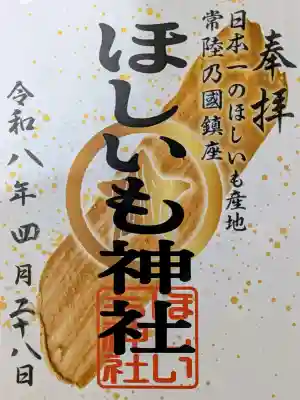 奉拝
日本一のほしいも産地
常陸乃國鎮座
ほしいも神社
ほしい
も神社
令和八年四月二十八日